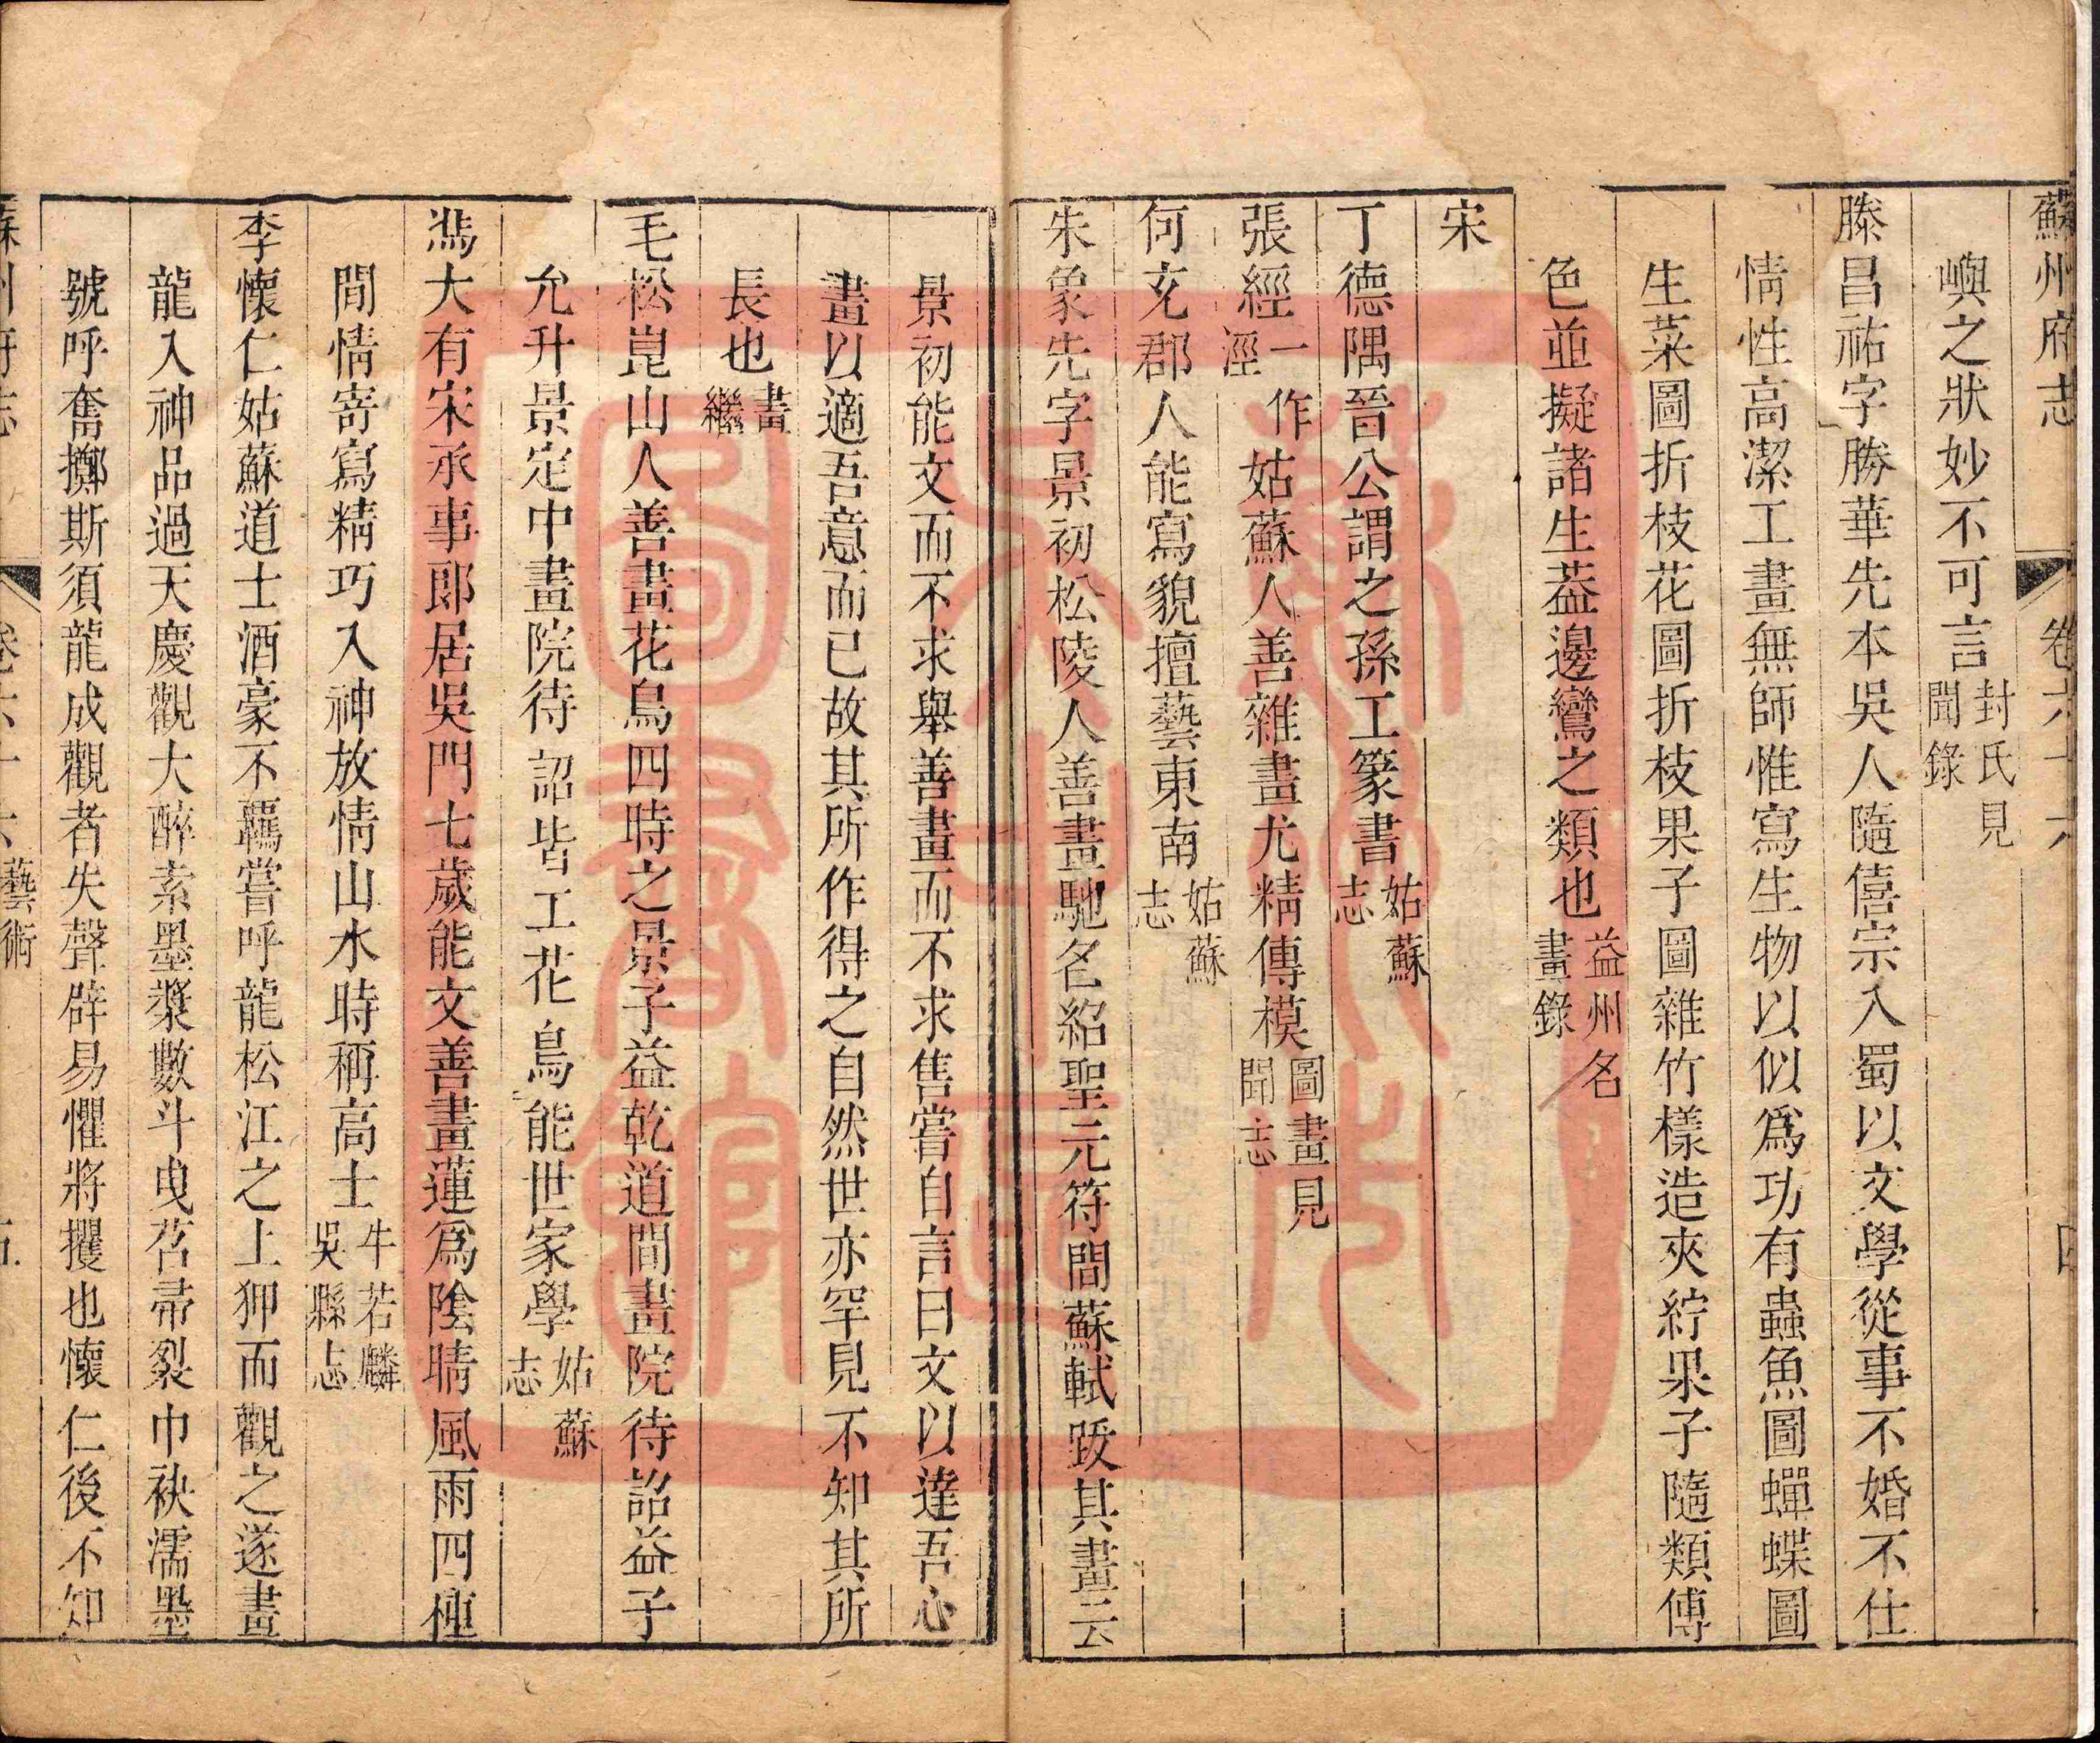 蘇州府志 卷六十六 四
嶼之狀妙不可言封氏見聞錄
滕昌祐字勝華先本吳人隨僖宗入蜀以文學從事不婚不仕
情性高潔工畫無師惟寫生物以似爲功有蟲魚圖蟬蝶圖
生菜圖折枝花圖折枝果子圖雜竹樣造夾紵果子隨類傅
色並擬諸生葢邊鸞之類也益州名畫錄
宋
丁德隅晉公謂之孫工篆書姑蘇志
張經一作淫姑蘇人善雜畫尤精傳模圖畫見聞志
何充郡人能寫貌擅藝東南姑蘇志
朱象先字景初松陵人善畫馳名紹聖元符間蘇軾跋其畫云
景初能文而不求舉善畫而不求售嘗自言曰文以達吾心
畫以適吾意而已故其所作得之自然世亦罕見不知其所
長也畫繼
毛松崑山人善畫花鳥四時之景子益乾道間畫院待詔益子
允升景定中畫院待詔皆工花鳥能世家學姑蘇志
馮大有宋承事郎居吳門七歲能文善畫蓮爲陰晴風雨四種
閒情寄寫精巧入神放情山水時稱高士牛若麟吳縣志
李懷仁姑蘇道士酒豪不羈嘗呼龍松江之上狎而觀之遂畫
龍入神品過天慶觀大醉索墨漿數斗曳苕帚裂巾袂濡墨
號呼奮擲斯須龍成觀者失聲辟易懼將攫也懷仁後不知
蘇州府志 卷六十六 藝術 五